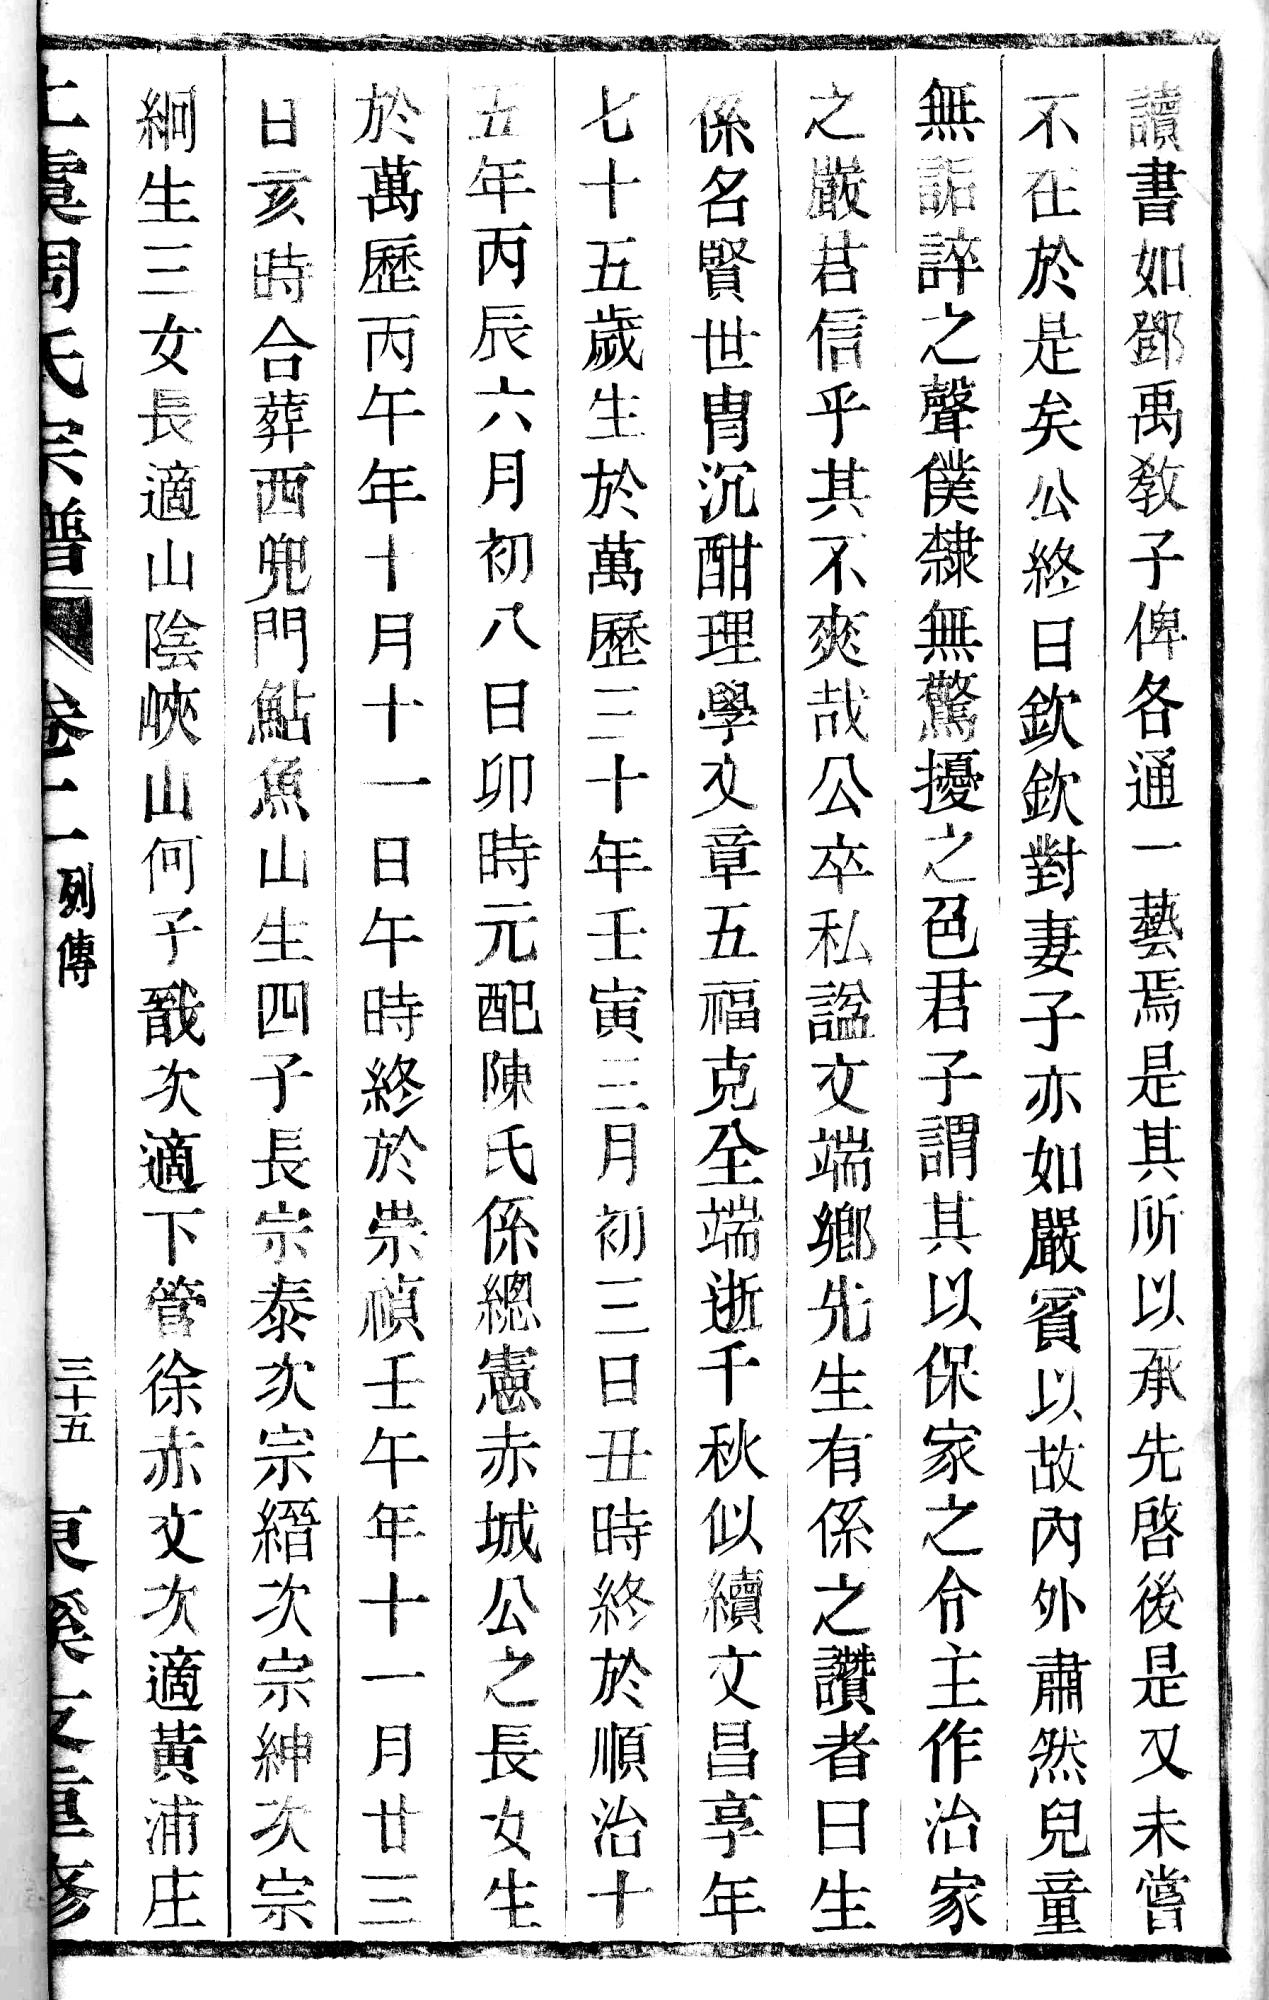 讀書如鄧禹教子俾各通一藝焉是其所以承先啓後是又未嘗
不在於是矣公終日欽欽對妻子亦如嚴賓以故內外肅然兒童
無詬誶之聲僕隸無驚擾之色君子謂其以保家之令主作治家
之嚴君信乎其不爽哉公卒私諡文端鄉先生有係之讚者曰生
係名賢世胄沉酣理學文章五福克全端逝千秋似續文昌享年
七十五歲生於萬歷三十年壬寅三月初三日丑時終於順治十
五年丙辰六月初八日卯時元配陳氏係總憲赤城公之長女生
於萬歷丙午年十月十一日午時終於崇禎壬午年十一月廿三
日亥時合葬西兜門鮎魚山生四子長宗泰次宗縉次宗紳次宗
絅生三女長適山陰峽山何子戩次適下管徐赤文次適黃浦庄
上虞周氏宗譜 卷十一 列傳 三十五 東溪支重修